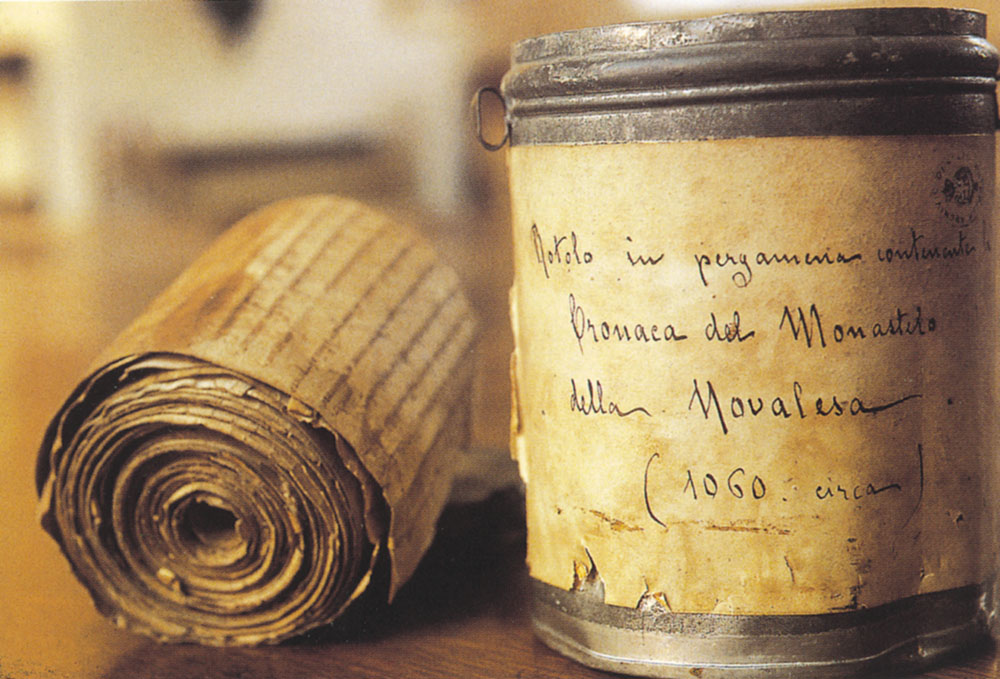 Rotolo in pergamena contenente la
Cronaca del Monastero
della Novalesa.
(1060. circa)